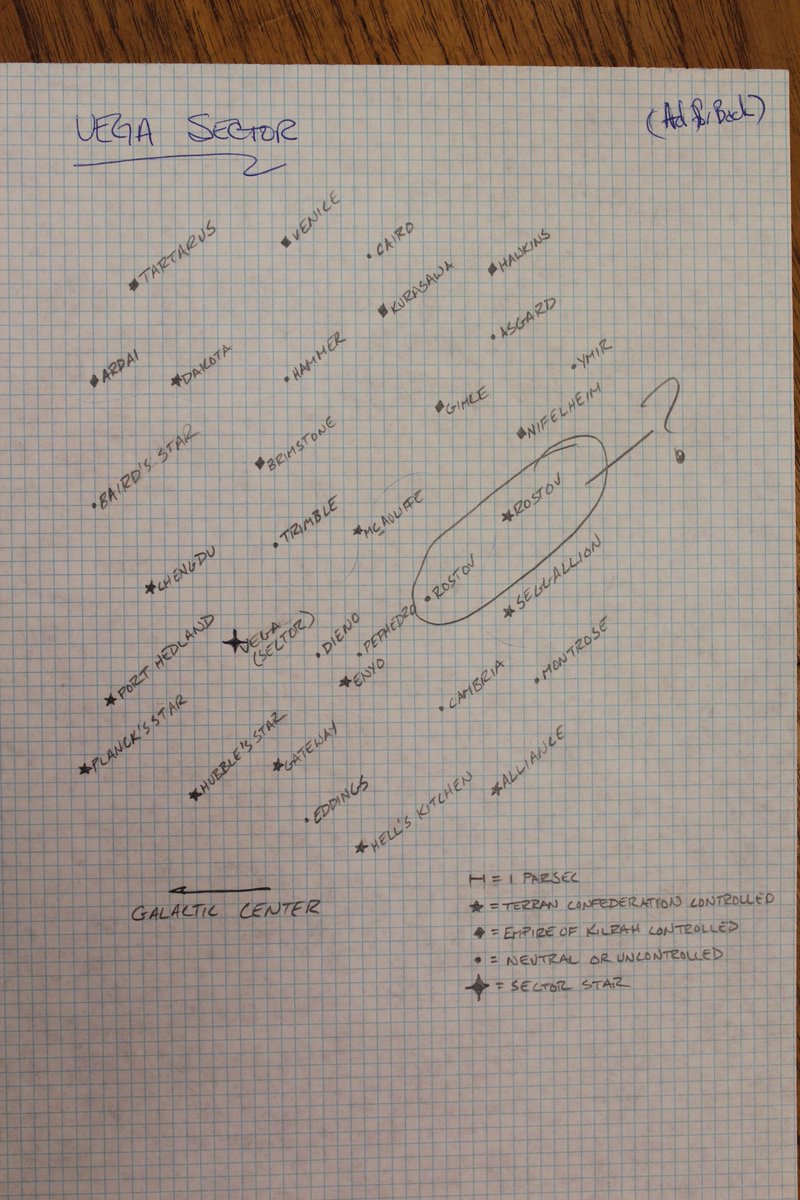 VEGA SECTOR
(Ad for Back)
TARTARUS
VENICE
CAIRO
KURASAWA
HAWKINS
ASGARD
YMIR
ARDAI
DAKOTA
HAMMER
GIMLE
NIFELHEIM
BAIRD'S STAR
BRIMSTONE
TRIMBLE
MCAULIFFE
ROSTOV
?
CHENGDU
ROSTOV
SEGGALLION
PORT HEDLAND
VEGA
(SECTOR)
DIENO
PEPHEDRO
ENYO
CAMBRIA
MONTROSE
PLANCK'S STAR
HUBBLE'S STAR
GATEWAY
EDDINGS
HELL'S KITCHEN
ALLIANCE
GALACTIC CENTER
= 1 PARSEC
= TERRAN CONFEDERATION CONTROLLED
= EMPIRE OF KILRAH CONTROLLED
= NEUTRAL OR UNCONTROLLED
= SECTOR STAR